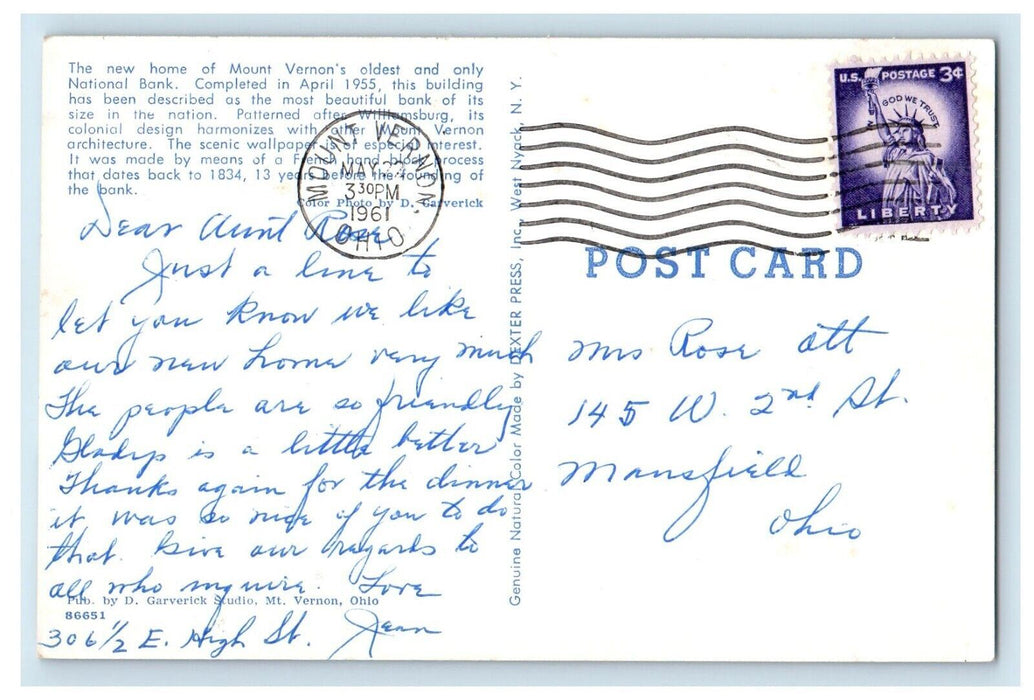 The new home of Mount Vernon's oldest and only
National Bank. Completed in April 1955, this building
has been described as the most beautiful bank of its
size in the nation. Patterned after Williamsburg, its
colonial design harmonizes with other Mount Vernon
architecture. The scenic wallpaper is of especial interest.
It was made by means of a French hand-block process
that dates back to 1834, 13 years before the founding of
the bank.
Color Photo by D. Garverick
MOUNT VERNON,
MAY
3 30 PM
1961
OHIO
U.S. POSTAGE 3¢
GOD WE TRUST
LIBERTY
POST CARD
Dear Aunt Rose
Just a line to
let you know we like
our new home very much
The people are so friendly
Gladys is a little better
Thanks again for the dinner
it was so nice of you to do
that. Give our regards to
all who inquire. Love
Jean
306 1/2 E. High St.
Pub. by D. Garverick Studio, Mt. Vernon, Ohio
86651
Genuine Natural Color Made by DEXTER PRESS, Inc. West Nyack, N. Y.
Mrs Rose Ott
145 W. 2nd St.
Mansfield
Ohio